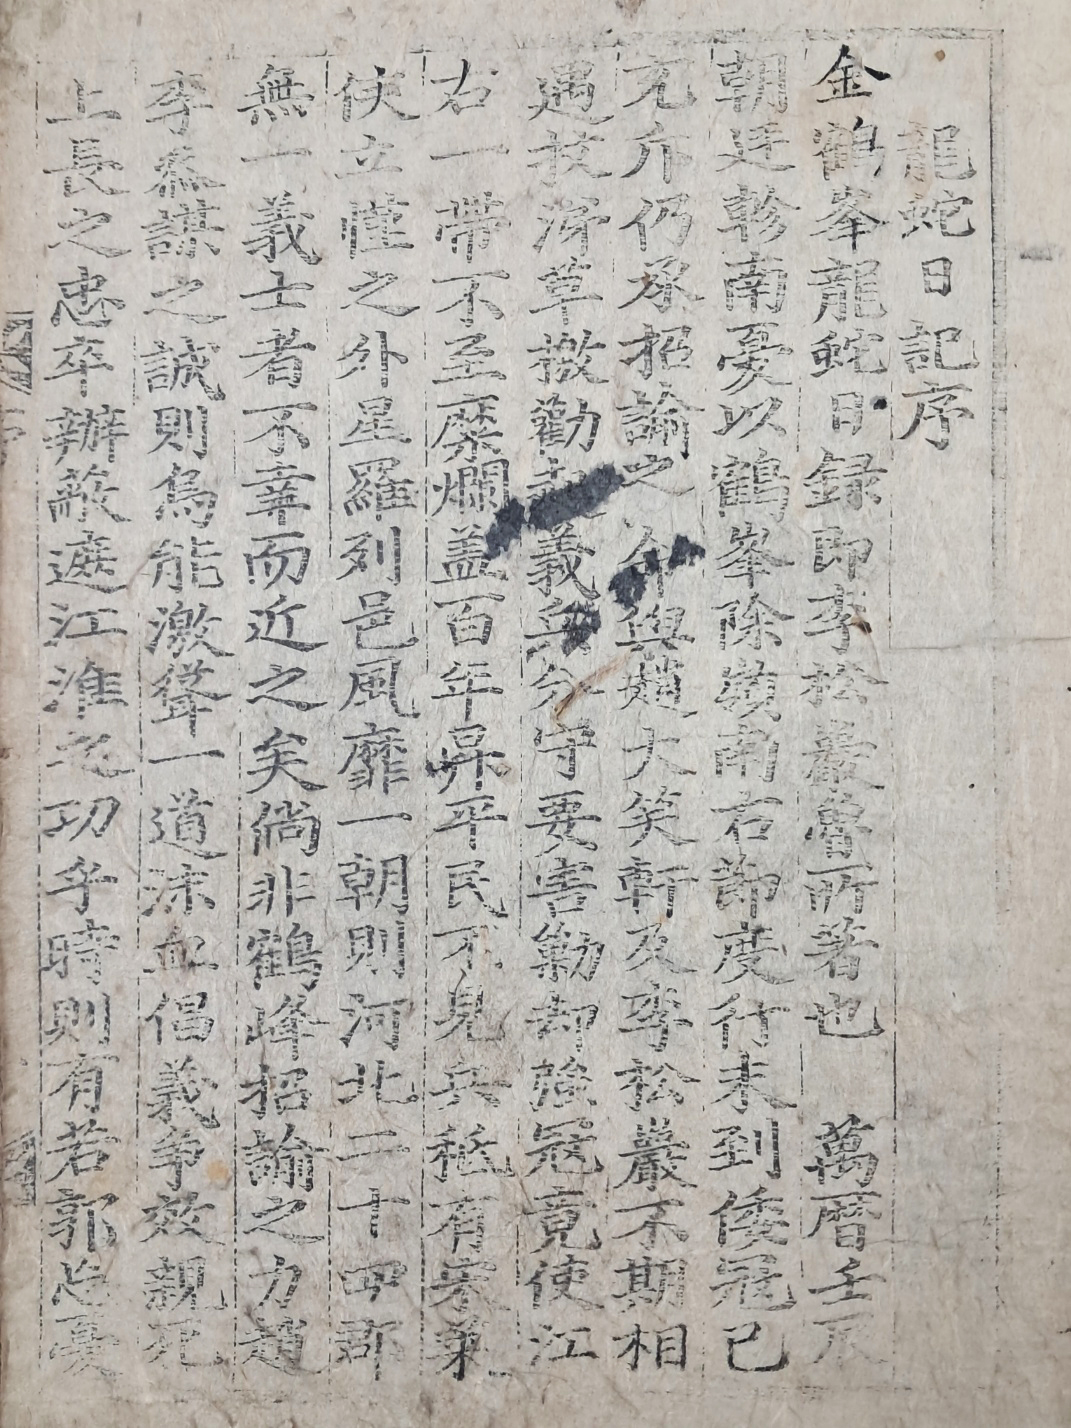 龍蛇日記序
金鶴峯龍蛇日録即李松巖魯所著也 萬曆壬辰
朝廷軫南憂以鶴峯除嶺南右節度行未到倭冦已
充斥仍承招諭之命與趙大笑軒及李松巖不期相
遇技淚草檄勸起義兵分守要害勦却強冦竟使江
右一帶不至糜爛盖百年昇平民不見兵稚有衆棄
伏立慬之外星羅列邑風靡一朝則河北二十四郡
無一義士者不幸而近之矣倘非鶴峰招諭之力趙
李 謨之誠則焉能激聳一道沫血倡義爭效親死
上長之忠卒辦蔽遮江淮之功乎時則有若郭忘憂